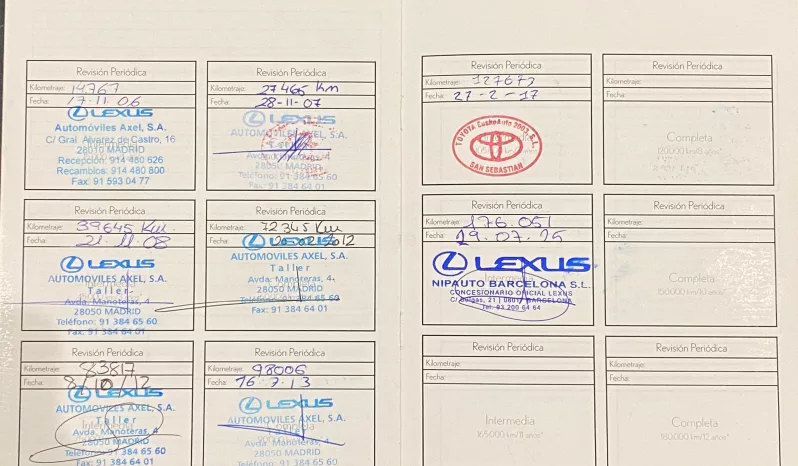 Revisión Periódica
Kilometraje: 14767
Fecha: 17-11-06
LEXUS
Automóviles Axel, S.A.
C/ Gral. Alvarez de Castro, 16
28010 MADRID
Recepción: 914 480 626
Recambios: 914 480 800
Fax: 91 593 04 77
Revisión Periódica
Kilometraje: 27465 Km
Fecha: 28-11-07
LEXUS
AUTOMÓVILES AXEL, S.A.
Taller
Avda. Manoteras, 4
28050 MADRID
Teléfono: 91 384 65 60
Fax: 91 384 64 01
Revisión Periódica
Kilometraje: 39645 Km.
Fecha: 21.11.08
LEXUS
AUTOMÓVILES AXEL, S.A.
Taller
Avda. Manoteras, 4
28050 MADRID
Teléfono: 91 384 65 60
Fax: 91 384 64 01
Revisión Periódica
Kilometraje: 72345 Km
Fecha: 2012
LEXUS
AUTOMÓVILES AXEL, S.A.
Taller
Avda. Manoteras, 4
28050 MADRID
Teléfono: 91 384 65 60
Fax: 91 384 64 01
Revisión Periódica
Kilometraje: 83817
Fecha: 8/10/12
LEXUS
AUTOMOVILES AXEL, S.A.
Taller
Avda. Manoteras, 4
28050 MADRID
Teléfono: 91 384 65 60
Fax: 91 384 64 01
Revisión Periódica
Kilometraje: 98006
Fecha: 16 7 13
LEXUS
AUTOMOVILES AXEL, S.A.
Avda. Manoteras, 4
28050 MADRID
Teléfono: 91 384 65 60
Fax: 91 384 64 01
Revisión Periódica
Kilometraje: 127677
Fecha: 27-2-17
TOYOTA EuskoAuto 2002, S.L.
SAN SEBASTIAN
Revisión Periódica
Kilometraje:
Fecha:
Completa
120000 km/8 años*
Revisión Periódica
Kilometraje: 176.051
Fecha: 29.07.25
LEXUS
NIPAUTO BARCELONA S.L.
CONCESIONARIO OFICIAL LEXUS
Tel. 93 200 64 64
Revisión Periódica
Kilometraje:
Fecha:
Completa
150000 km/10 años*
Revisión Periódica
Kilometraje:
Fecha:
Intermedia
165000 km/11 años*
Revisión Periódica
Kilometraje:
Fecha:
Completa
180000 km/12 años*